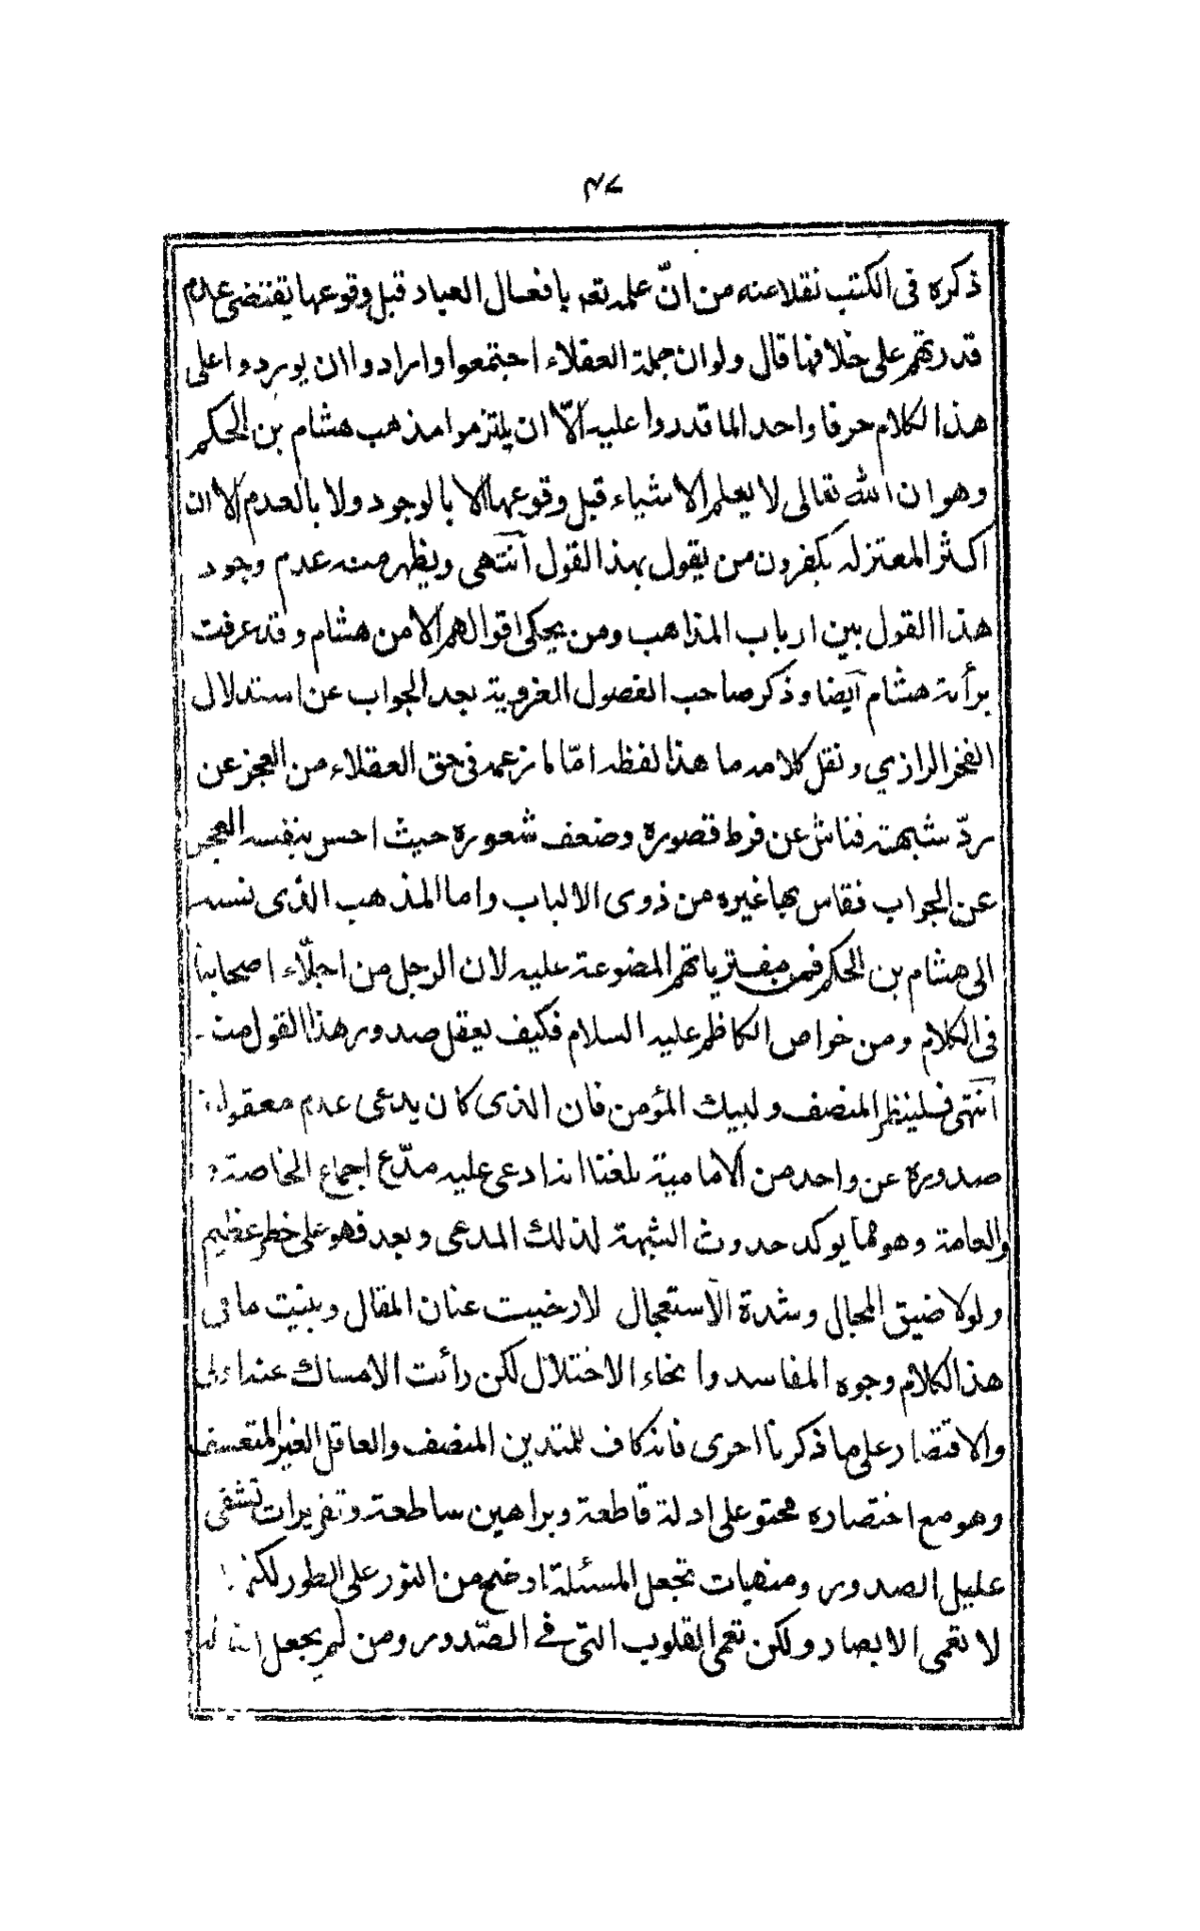 ٤٧
ذكره فى الكتب نقلا عنه من انّ علمه تعه بافعال العباد قبل وقوعها يقتضى عدم
قدرتهم على خلافها قال ولو ان جملة العقلاء اجتمعوا وارادوا ان يوردوا على
هذا الكلام حرفا واحدا لما قدروا عليه الّا ان يلتزموا مذهب هشام بن الحكم
وهو ان الله تعالى لا يعلم الاشياء قبل وقوعها الا بالوجود ولا بالعدم الا ان
اكثر المعتزله يكفرون من يقول بهذا القول آنتهى ويظهر منه عدم وجود
هذا القول بين ارباب المذاهب ومن يحكى اقوالهم الا من هشام وقد عرفت
برأة هشام آيضا وذكر صاحب الفصول الغروية بعد الجواب عن استدلال
الفخر الرازي ونقل كلامه ما هذا لفظه امّا ما زعمه فى حق العقلاء من العجز عن
ردّ شبهته فناش عن فرط قصوره وضعف شعوره حيث احس بنفسه العجز
عن الجواب فقاس بها غيره من ذوى الالباب واما المذهب الّذى نسبه
الى هشام بن الحكم فهى مفترياتهم المضوعة عليه لان الرجل من اجلّاء اصحابنا
فى الكلام ومن خواص الكاظم عليه السلام فكيف يعقل صدور هذا القول منه
آنتهى فلينظر المنصف ولبيك المؤمن فان الذى كان يدعى عدم معقولية
صدوره عن واحد من الامامية بلغنا انه ادعى عليه مدّع اجماع الخاصة و
والعامة وهو مما يوكد حدوث الشبهة لذلك المدعى وبعد فهو على خطر عظيم
ولولا ضيق المجال وشدة الآستعجال لارخيت عنان المقال وبينت ما فى
هذا الكلام وجوه المفاسد وانحاء الاختلال لكن رائت الامساك عنه اولى
والاقتصار على ما ذكرنا احرى فانه كاف للمتدين المنصف والعاقل الغير المتعسف
وهو مع اختصاره محتو على ادلة قاطعة وبراهين ساطعة وتقريرات تشفى
عليل الصدور ومنهيات تجعل المسئلة اوضح من النور على الطور لكنه
لا تعمى الابصار ولكن تعمى القلوب التى فى الصّدور ومن لم يجعل الله له